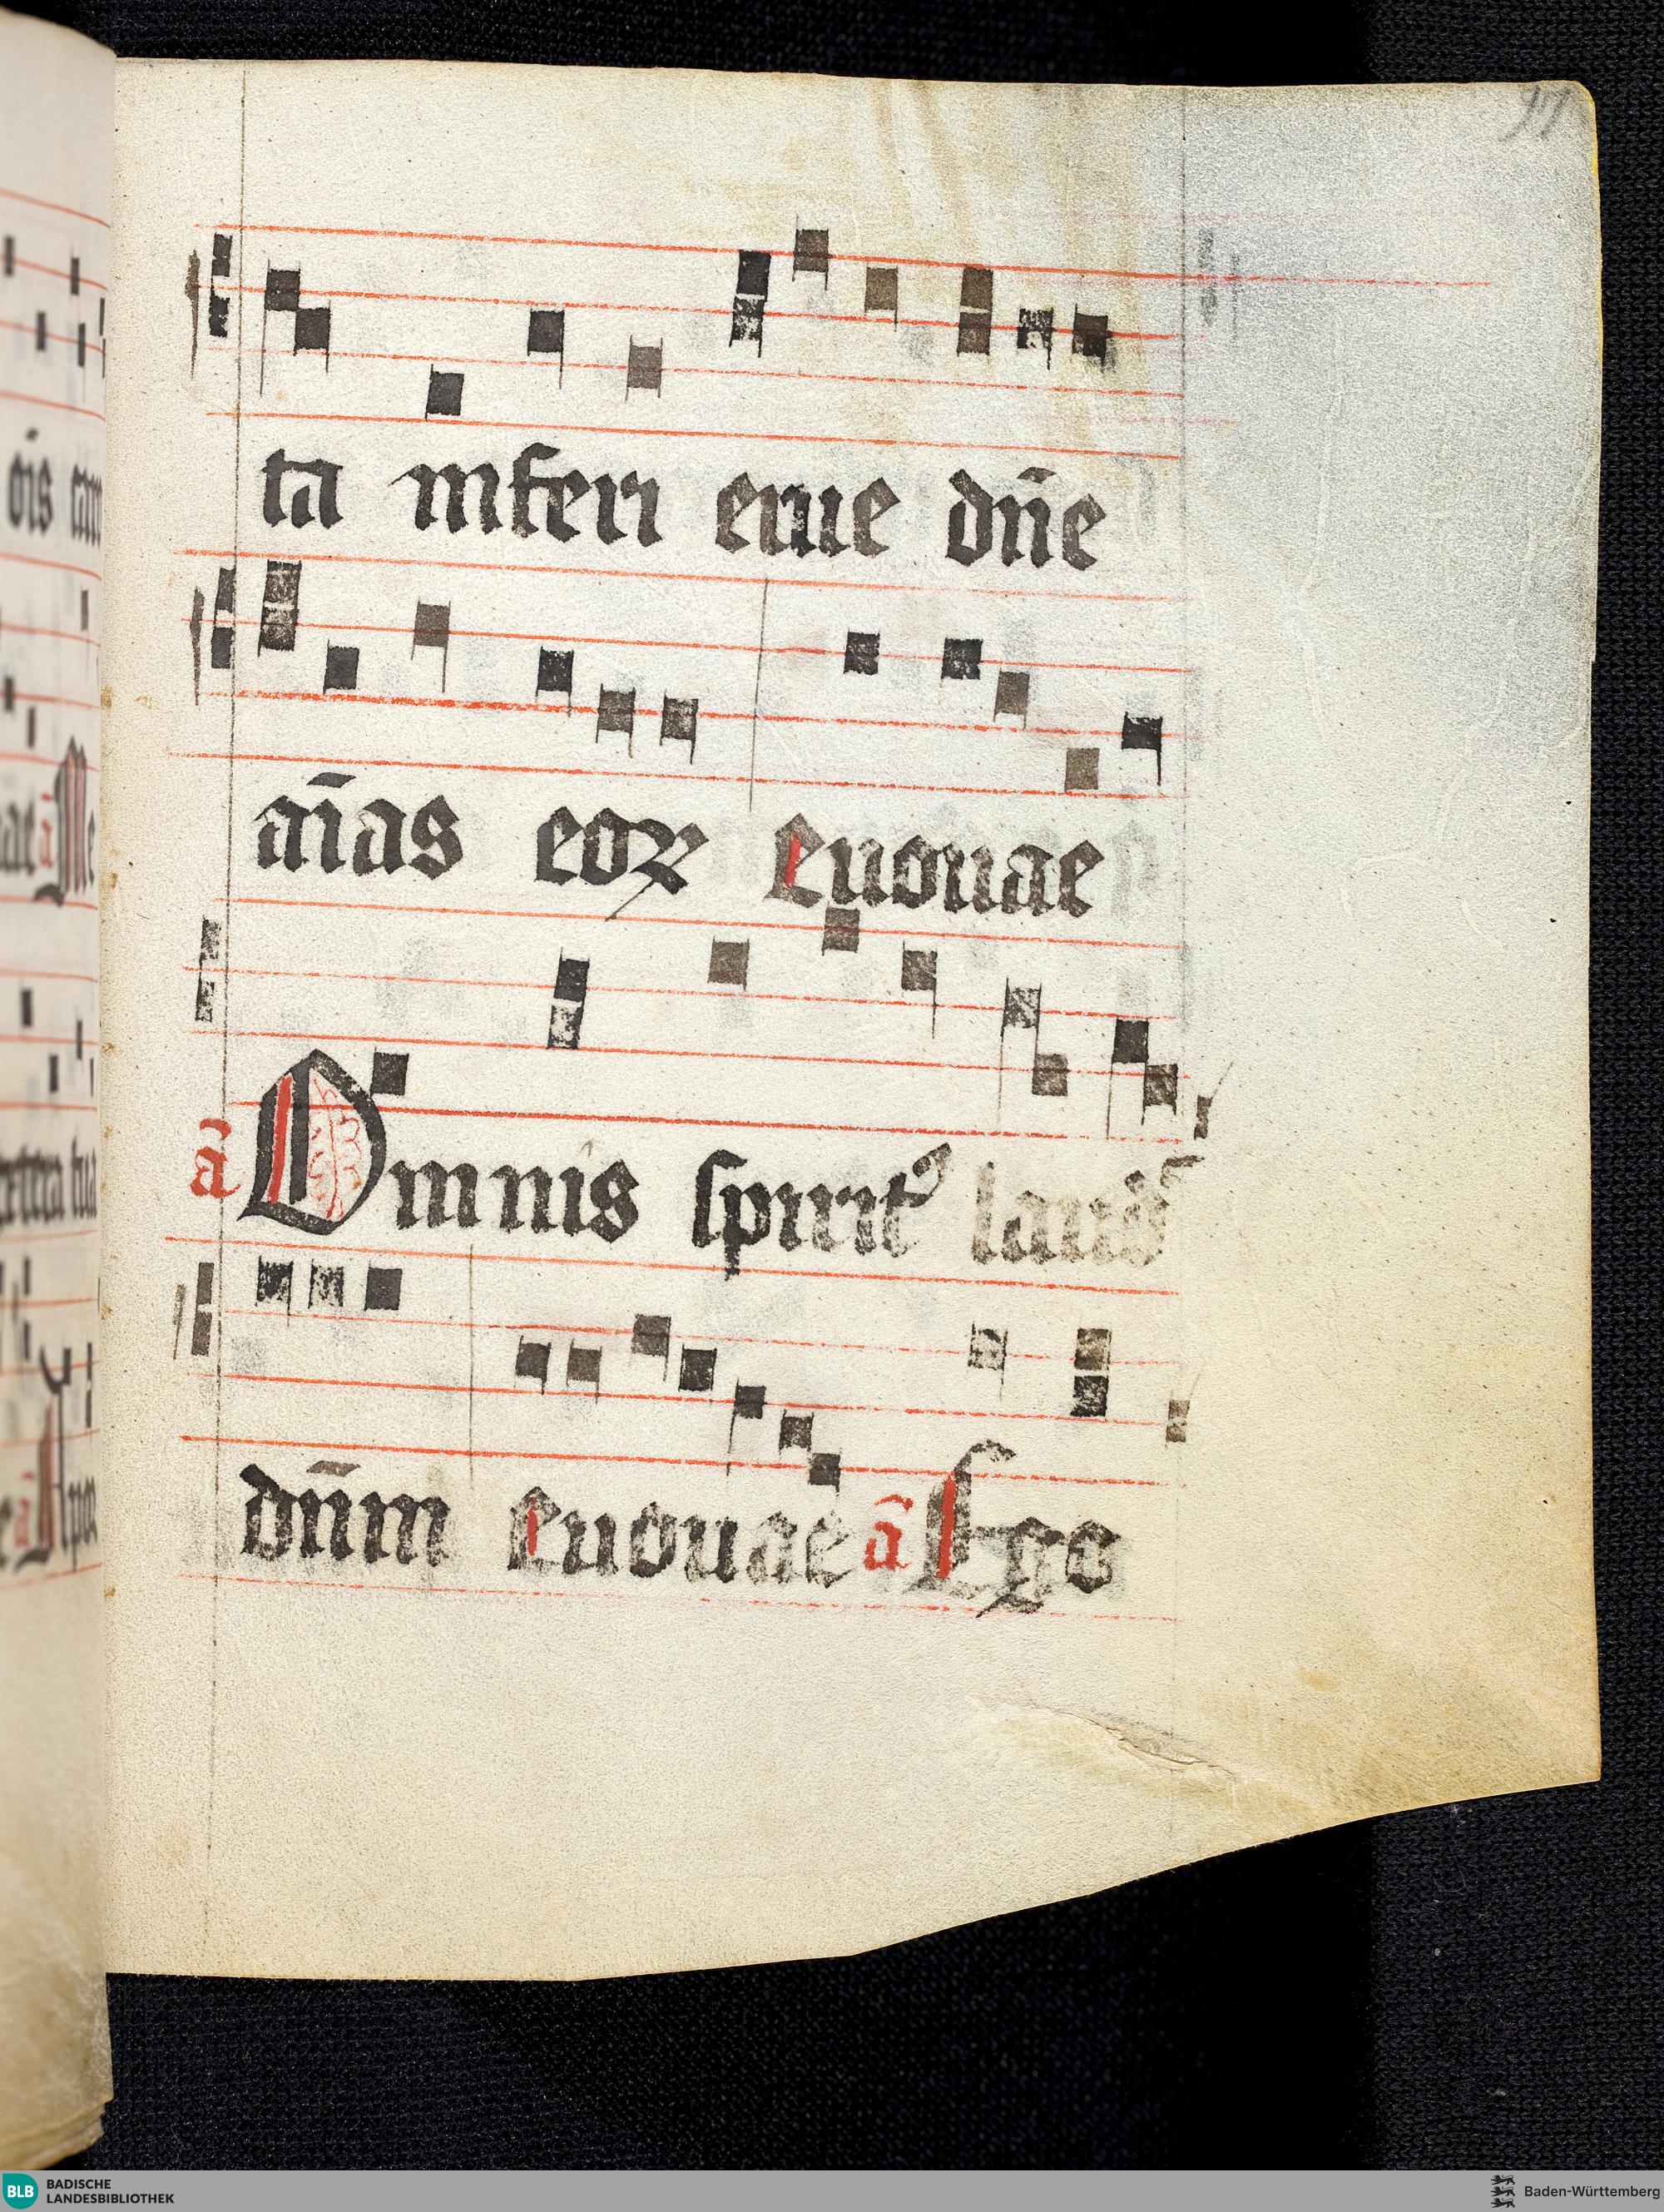 ta inferi erue dn̄e
aīas eoꝝ euouae
ā Omnis spirit᷒ laud͛
dn̄m euouae ā Ego
BLB BADISCHE
LANDESBIBLIOTHEK
Baden-Württemberg